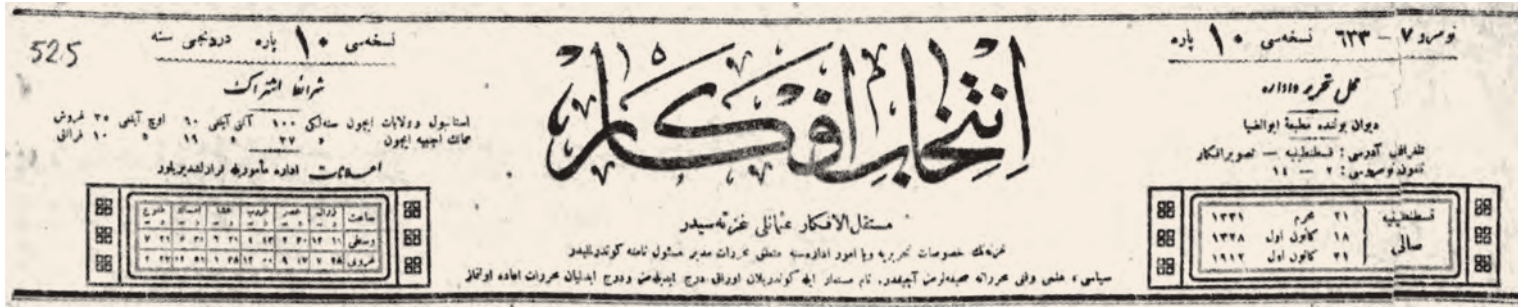 نومرو ٧ — ٦٣٣ نسخه‌سی ١٠ پاره
محل تحریر و اداره
دیوان یولنده مطبعهٔ ابوالضیا
تلغراف آدرسی : قسطنطینیه — تصویر افکار
تلفون نومروسی : ٢ — ١٤
قسطنطینیه
صالی
٢١ محرم ١٣٣١
١٨ کانون اول ١٣٢٨
٣١ کانون اول ١٩١٢
انتخاب افكار
مستقل الافکار عثمانلی غزته‌سیدر
غزته‌نك خصوصات تحریریه ویا امور اداره‌سنه متعلق محررات مدیر مسئول نامنه کوندرلیدر
سیاسی، علمی وفنی محرراته صحیفه‌لرمز آچیقدر. نام مستعار ایله کوندریلان اوراق درج ایدیلمز ودرج ایدلیان محررات اعاده اولنماز
525
نسخه‌سی ١٠ پاره دردنجی سنه
شرائط اشتراك
استانبول وولایات ایچون سنه‌لکی ١٠٠ آلتی آیلغی ٦٠ اوچ آیلغی ٣٥ غروش
ممالك اجنبیه ایچون » ٣٧ » ١٩ » ١٠ فرانق
اعلانات اداره مأموریله قرارلشدیریلور
ساعت زوال عصر غروب عشا امساك طلوع
وسطی
غروبی